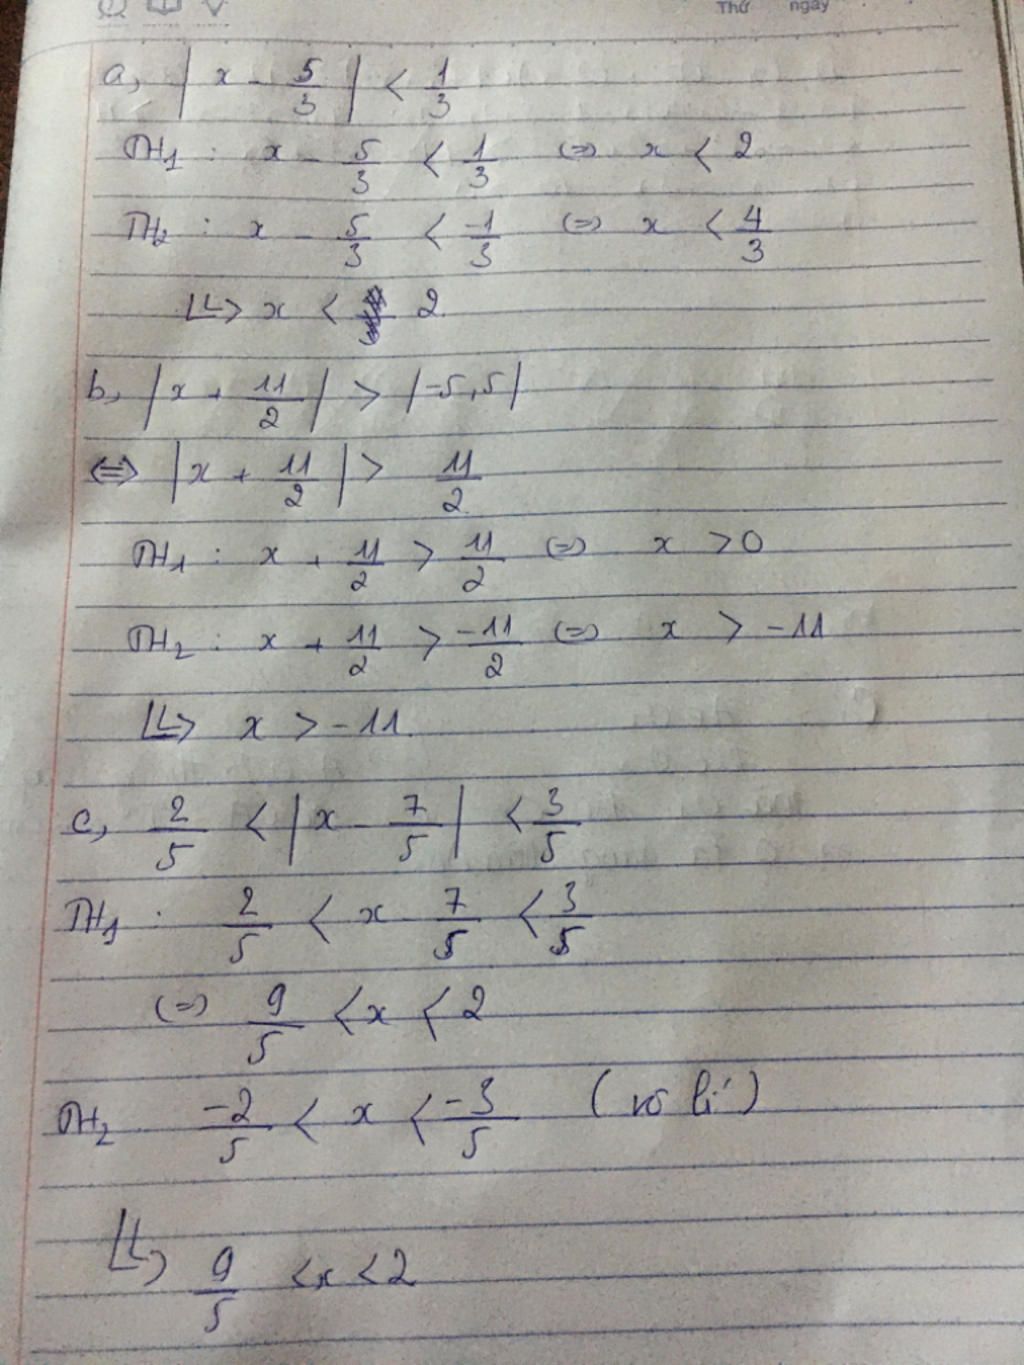 Thứ ngày
a, |x - 5/3| < 1/3
TH1 : x - 5/3 < 1/3 (=) x < 2
TH2 : x - 5/3 < -1/3 (=) x < 4/3
x < 2
b, |x + 11/2| > |-5,5|
<=> |x + 11/2| > 11/2
TH1 : x + 11/2 > 11/2 (=) x > 0
TH2 : x + 11/2 > -11/2 (=) x > -11
x > -11.
c, 2/5 < |x - 7/5| < 3/5
TH1 : 2/5 < x - 7/5 < 3/5
(=) 9/5 < x < 2
TH2 -2/5 < x < -3/5 (vô lí)
9/5 < x < 2